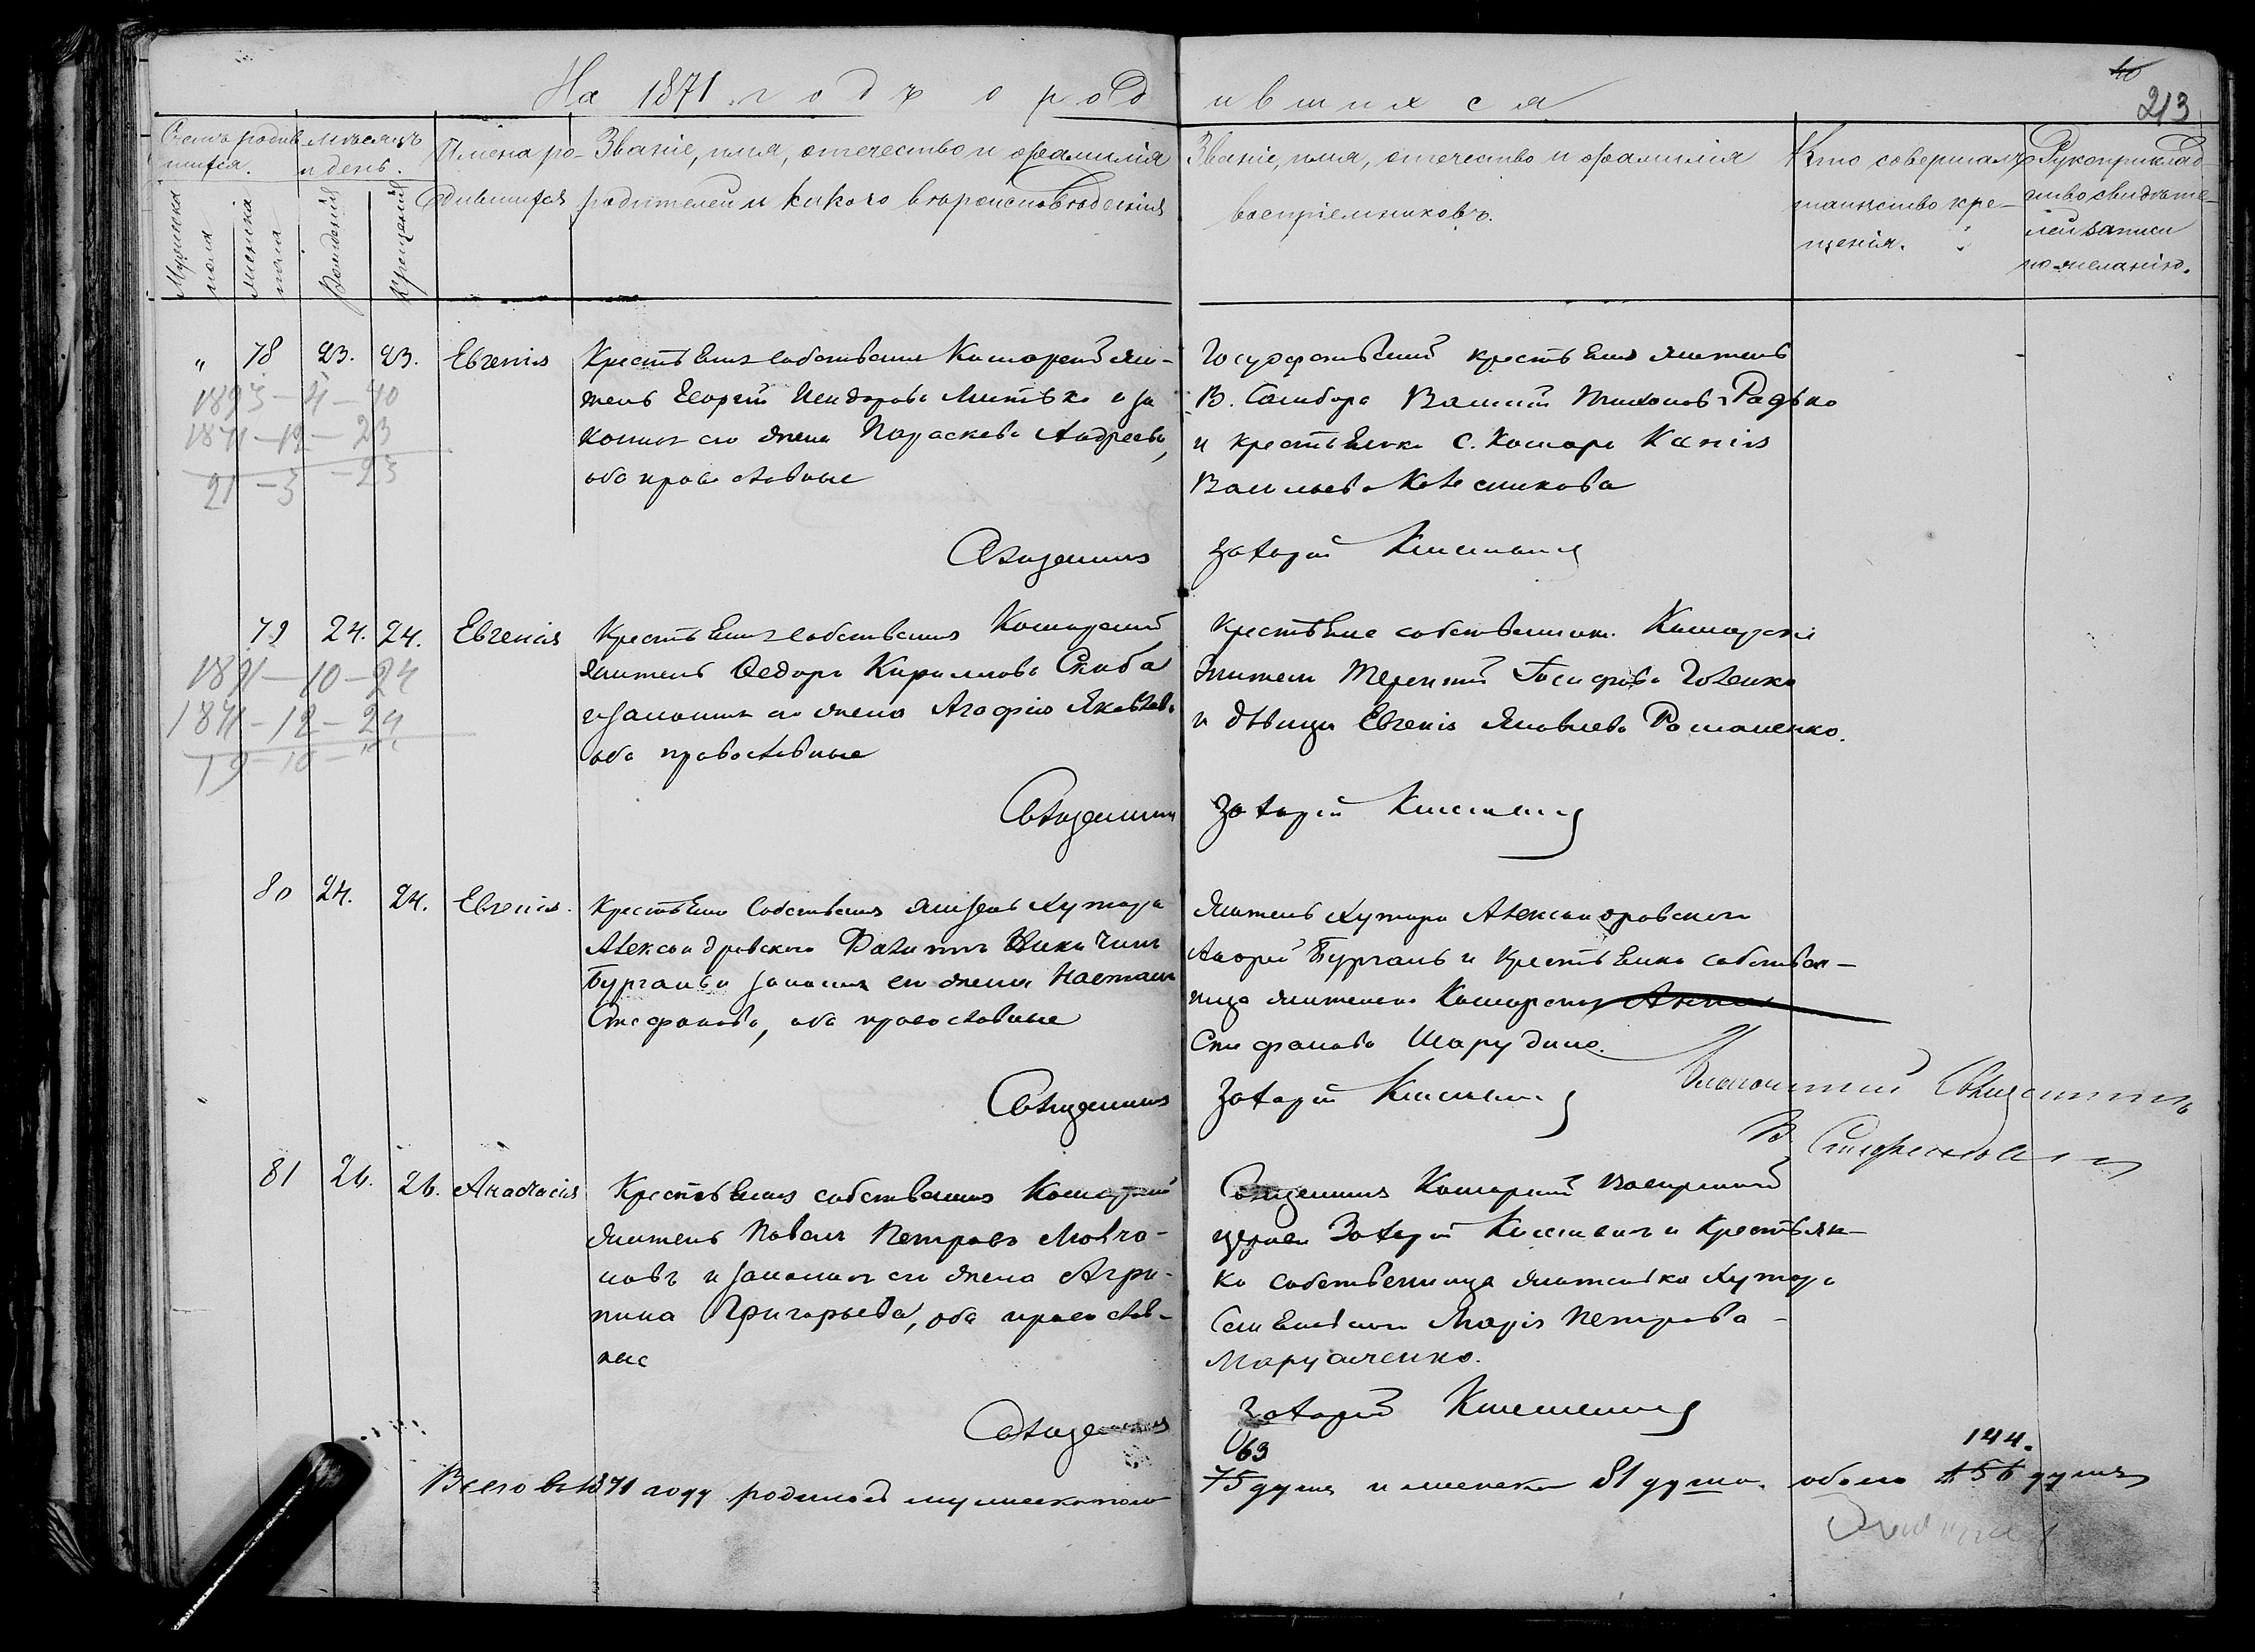 На 1871 годъ о родившихся
40
213
Счетъ родившихся.
Мужеска пола
Женска пола
Мѣсяцъ и день.
Рожденія
Крещенія
Имена родившихся
Званіе, имя, отечество и фамилія
родителей и какого вѣроисповѣденія
Званіе, имя, отечество и фамилія
воспріемниковъ.
Кто совершалъ
таинство кре-
щенія.
Рукоприклад
ство свидѣте-
лей записи
по желанію.
" 78 23. 23. Евгенія
Крестьянинъ собственникъ Кошарскій жи-
тель Георгій Исидоровъ Митько и за
конная его жена Параскева Андреева,
оба православные
Государственный крестьянинъ житель
В. Самбора Василій Тихоновъ Радько
и крестьянка С. Кошаръ Ксенія
Васильева Колесникова
Священникъ Захарій
1893 - 4 - 10
1871 - 12 - 23
21 - 3 - 23
79 24. 24. Евгенія
Крестьянинъ собственникъ Кошарскій
житель Федоръ Кириловъ Скиба
и законная его жена Агафія Яковлева
оба православные
Крестьяне собственники Кошарскіе
жители Терентій Іосифовъ Головко
и дѣвица Евгенія Яковлева Романенко.
Священникъ Захарій
1891 - 10 - 24
1871 - 12 - 24
19 - 10 - "
80 24. 24. Евгенія.
Крестьянинъ собственникъ житель хутора
Александровскаго Филиппъ
Бургань и законная его жена Настасія
Стефанова, оба православные
житель хутора Александровскаго
Андрей Бургань и крестьянка собствен-
ница жителька Кошарская Анна
Стефанова Шарудина.
Священникъ Захарій
Священникъ
В.
81 26. 26. Анастасія
Крестьянинъ собственникъ Кошарскій
житель Павелъ Петровъ Мовча-
новъ и законная его жена Агри-
пина Григорьева, оба православ-
ные
Священникъ Кошарской Покровской
церкви Захарій и крестьян-
ка собственница жителька хутора
Марія Петрова
Марущенко.
Священникъ Захарій
63
144.
Всего въ 1871 году родилось мужеска пола
75 душъ и женска 81 душа. обоего 156 душъ